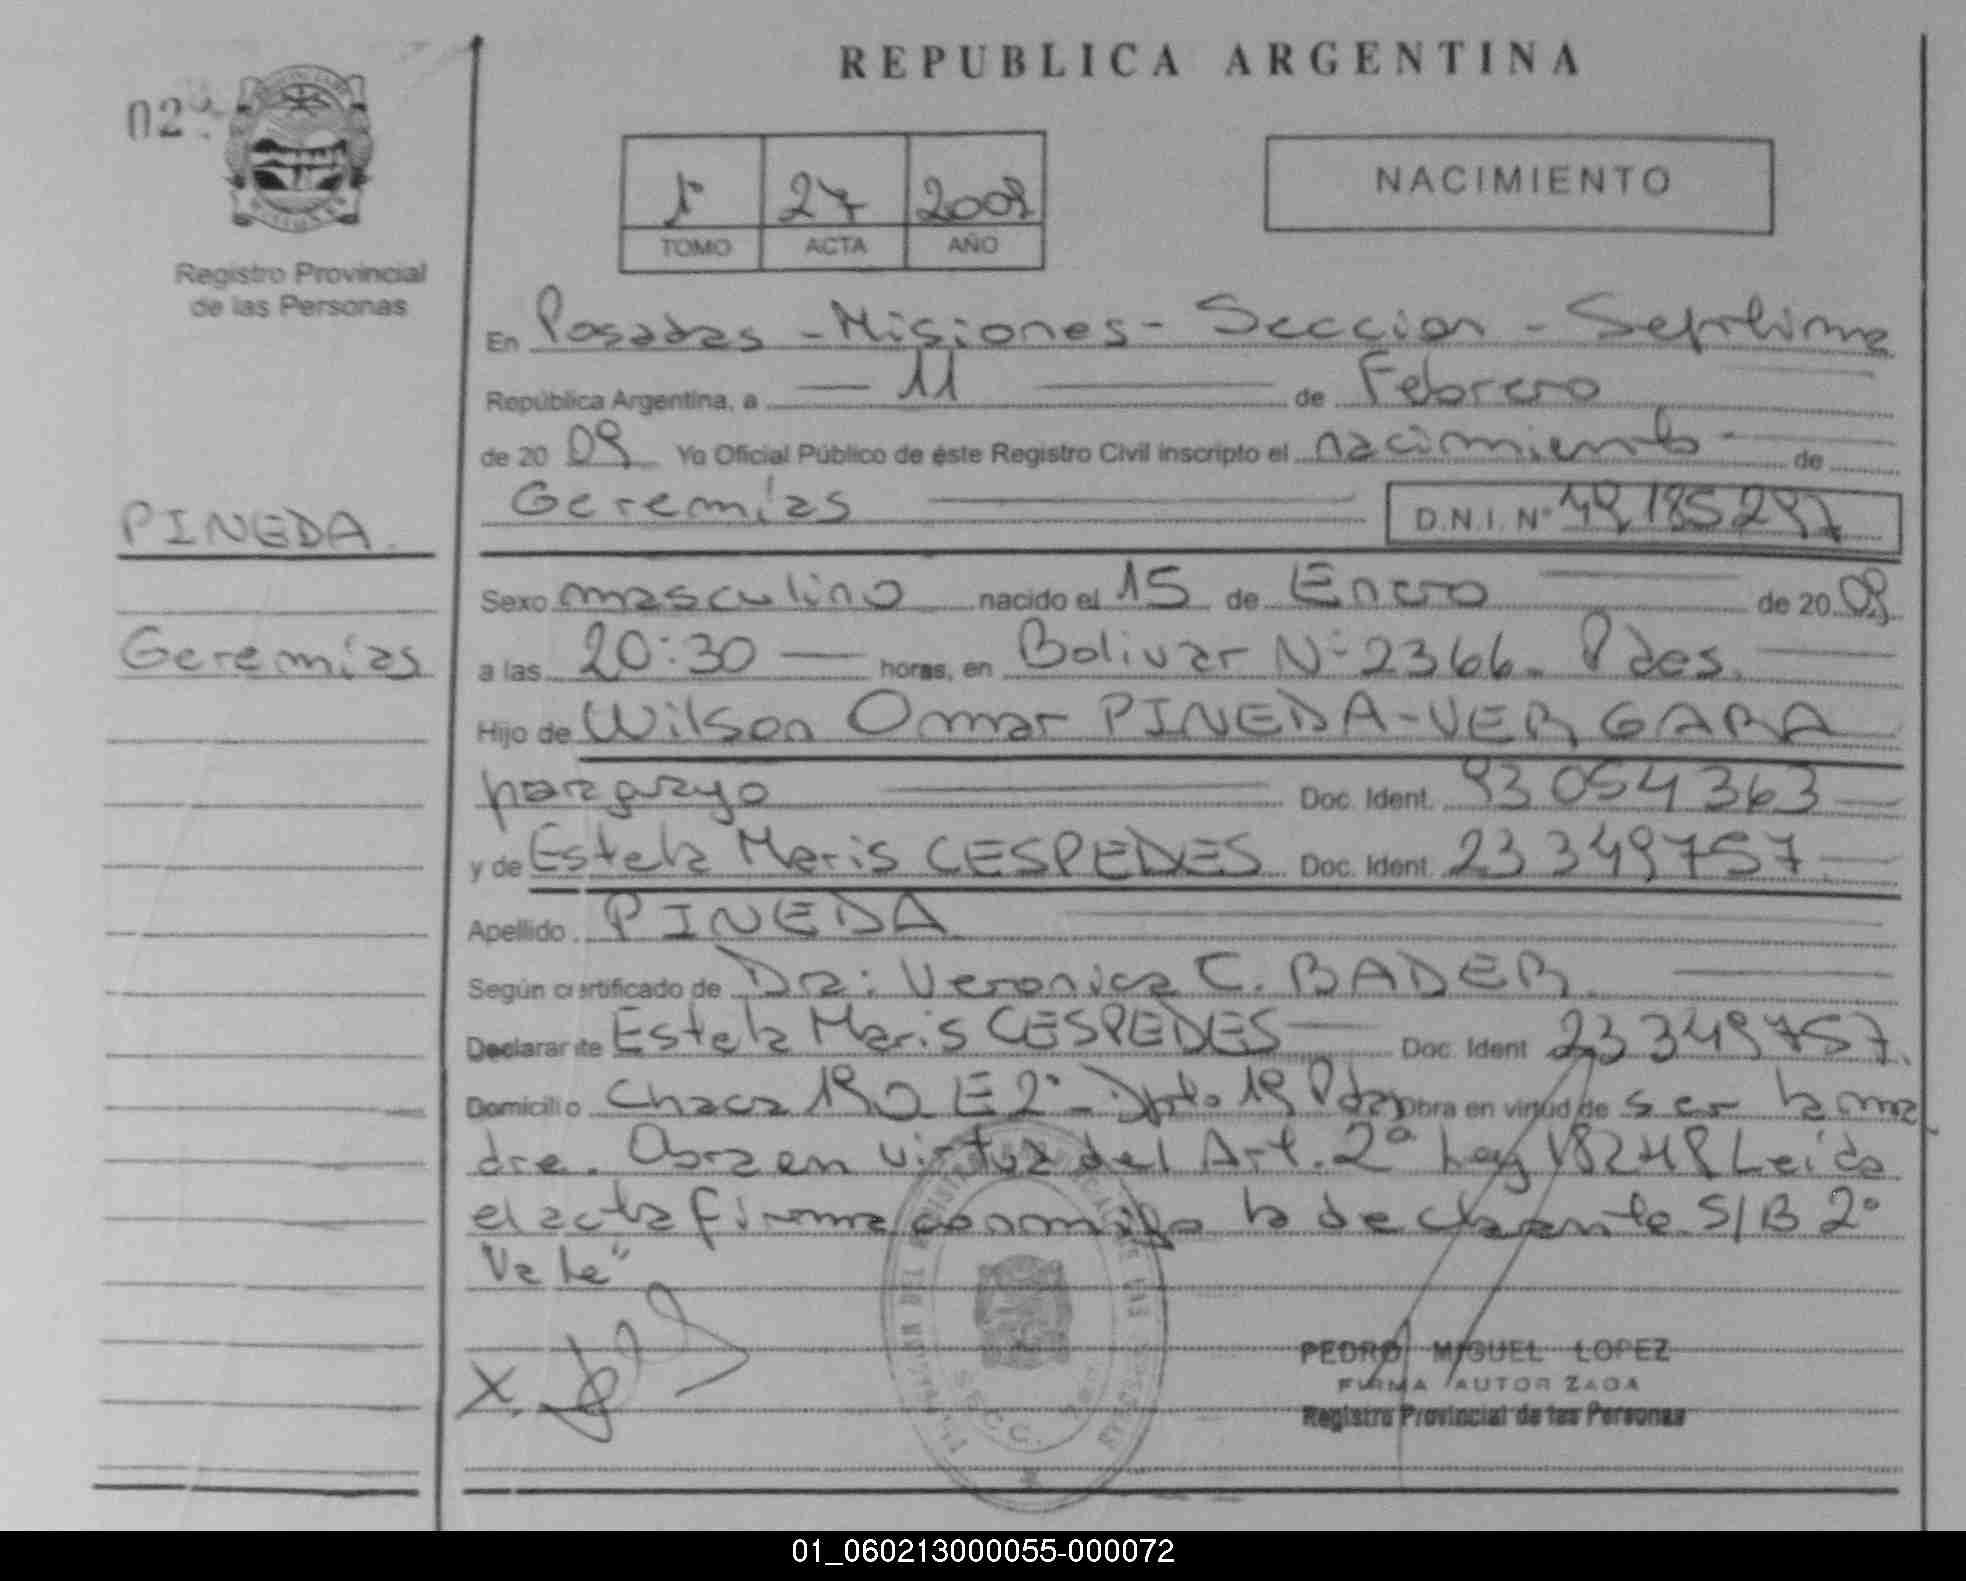 REPUBLICA ARGENTINA
02
1° 27 2009
TOMO ACTA AÑO
NACIMIENTO
Registro Provincial
de las Personas
En Posadas - Misiones - Seccion - Septima
República Argentina, a 11 de Febrero
de 20 09 Yo Oficial Público de éste Registro Civil inscripto el nacimiento de
Geremías D.N.I. N° 49185297
PINEDA
Sexo masculino nacido el 15 de Enero de 20 09
Geremías
a las 20:30 horas, en Bolivar N° 2366 - Pdas.
Hijo de Wilson Omar PINEDA - VERGARA
paraguayo Doc. Ident. 93 054 363
y de Estela Maris CESPEDES Doc. Ident. 23 349757
Apellido PINEDA
Según certificado de Dra: Veronica C. BADER
Declarante Estela Maris CESPEDES Doc. Ident 23 349757.
Domicilio Chaca 190 E 2° - Dpto. 19 Pdas Obra en virtud de ser la ma
dre. Obra en virtud del Art. 2° Ley 18248 Leida
el acta firma conmigo la declarante S/B 2°
"Vale"
X.
PEDRO MIGUEL LOPEZ
FIRMA AUTORIZADA
Registro Provincial de las Personas
01_060213000055-000072